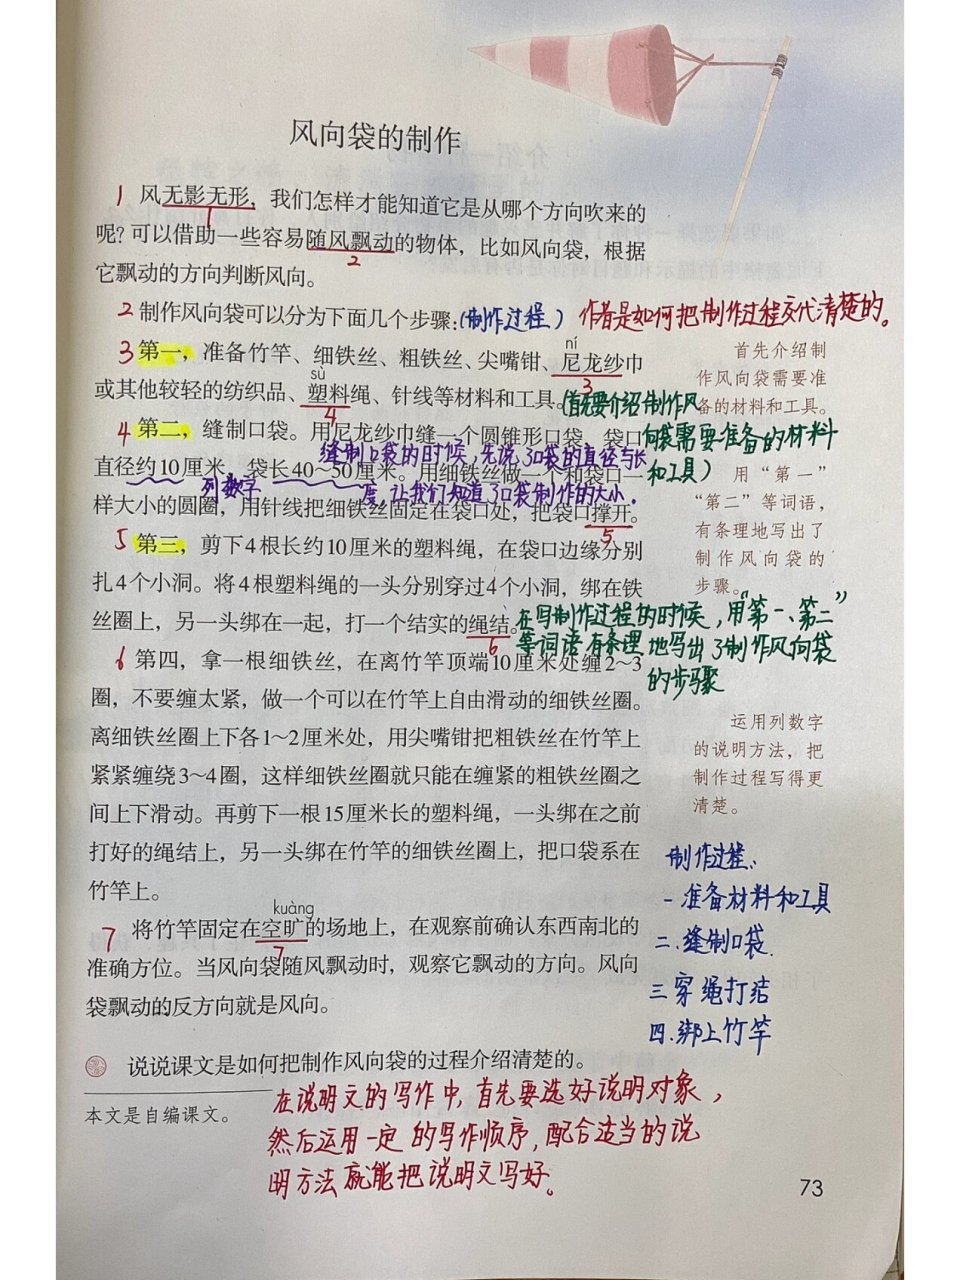 风向袋的制作
1 风无影无形，我们怎样才能知道它是从哪个方向吹来的
1
呢？可以借助一些容易随风飘动的物体，比如风向袋，根据
2
它飘动的方向判断风向。
2 制作风向袋可以分为下面几个步骤：(制作过程) 作者是如何把制作过程交代清楚的。
ní
3 第一，准备竹竿、细铁丝、粗铁丝、尖嘴钳、尼龙纱巾
3
sù
或其他较轻的纺织品、塑料绳、针线等材料和工具。
4
(首先要介绍制作风
向袋需要准备的材料
和工具)
首先介绍制
作风向袋需要准
备的材料和工具。
4 第二，缝制口袋。用尼龙纱巾缝一个圆锥形口袋，袋口
缝制口袋的时候，先说了口袋的直径与长
直径约10厘米，袋长40～50厘米。用细铁丝做一个和袋口一
列数字
度，让我们知道了口袋制作的大小。
样大小的圆圈，用针线把细铁丝固定在袋口处，把袋口撑开。
5
用“第一”
“第二”等词语，
有条理地写出了
制作风向袋的
步骤。
5 第三，剪下4根长约10厘米的塑料绳，在袋口边缘分别
扎4个小洞。将4根塑料绳的一头分别穿过4个小洞，绑在铁
丝圈上，另一头绑在一起，打一个结实的绳结。
6
在写制作过程的时候，用“第一、第二”
等词语有条理地写出了制作风向袋
的步骤
6 第四，拿一根细铁丝，在离竹竿顶端10厘米处缠2～3
圈，不要缠太紧，做一个可以在竹竿上自由滑动的细铁丝圈。
离细铁丝圈上下各1～2厘米处，用尖嘴钳把粗铁丝在竹竿上
紧紧缠绕3～4圈，这样细铁丝圈就只能在缠紧的粗铁丝圈之
间上下滑动。再剪下一根15厘米长的塑料绳，一头绑在之前
打好的绳结上，另一头绑在竹竿的细铁丝圈上，把口袋系在
竹竿上。
运用列数字
的说明方法，把
制作过程写得更
清楚。
制作过程：
一 准备材料和工具
二.缝制口袋.
三 穿绳打结
四.绑上竹竿
kuàng
7 将竹竿固定在空旷的场地上，在观察前确认东西南北的
7
准确方位。当风向袋随风飘动时，观察它飘动的方向。风向
袋飘动的反方向就是风向。
说说课文是如何把制作风向袋的过程介绍清楚的。
本文是自编课文。
在说明文的写作中，首先要选好说明对象，
然后运用一定的写作顺序，配合适当的说
明方法就能把说明文写好。
73